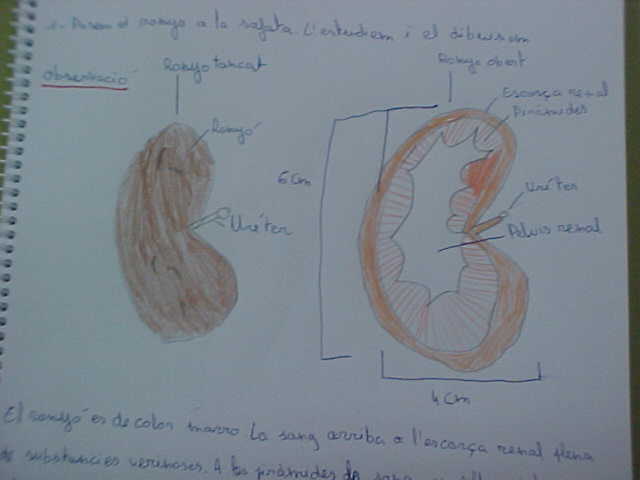 Posem el ronyó a la safata. L'estudiem i el dibuixem
Observació
Ronyo tancat
Ronyo obert
Escorça renal
Piràmides
Ronyó
6 cm
Urèter
Urèter
Pelvis renal
4 cm
El ronyó és de color marró. La sang arriba a l'escorça renal plena
de substancies verinoses. A les piràmides la sang